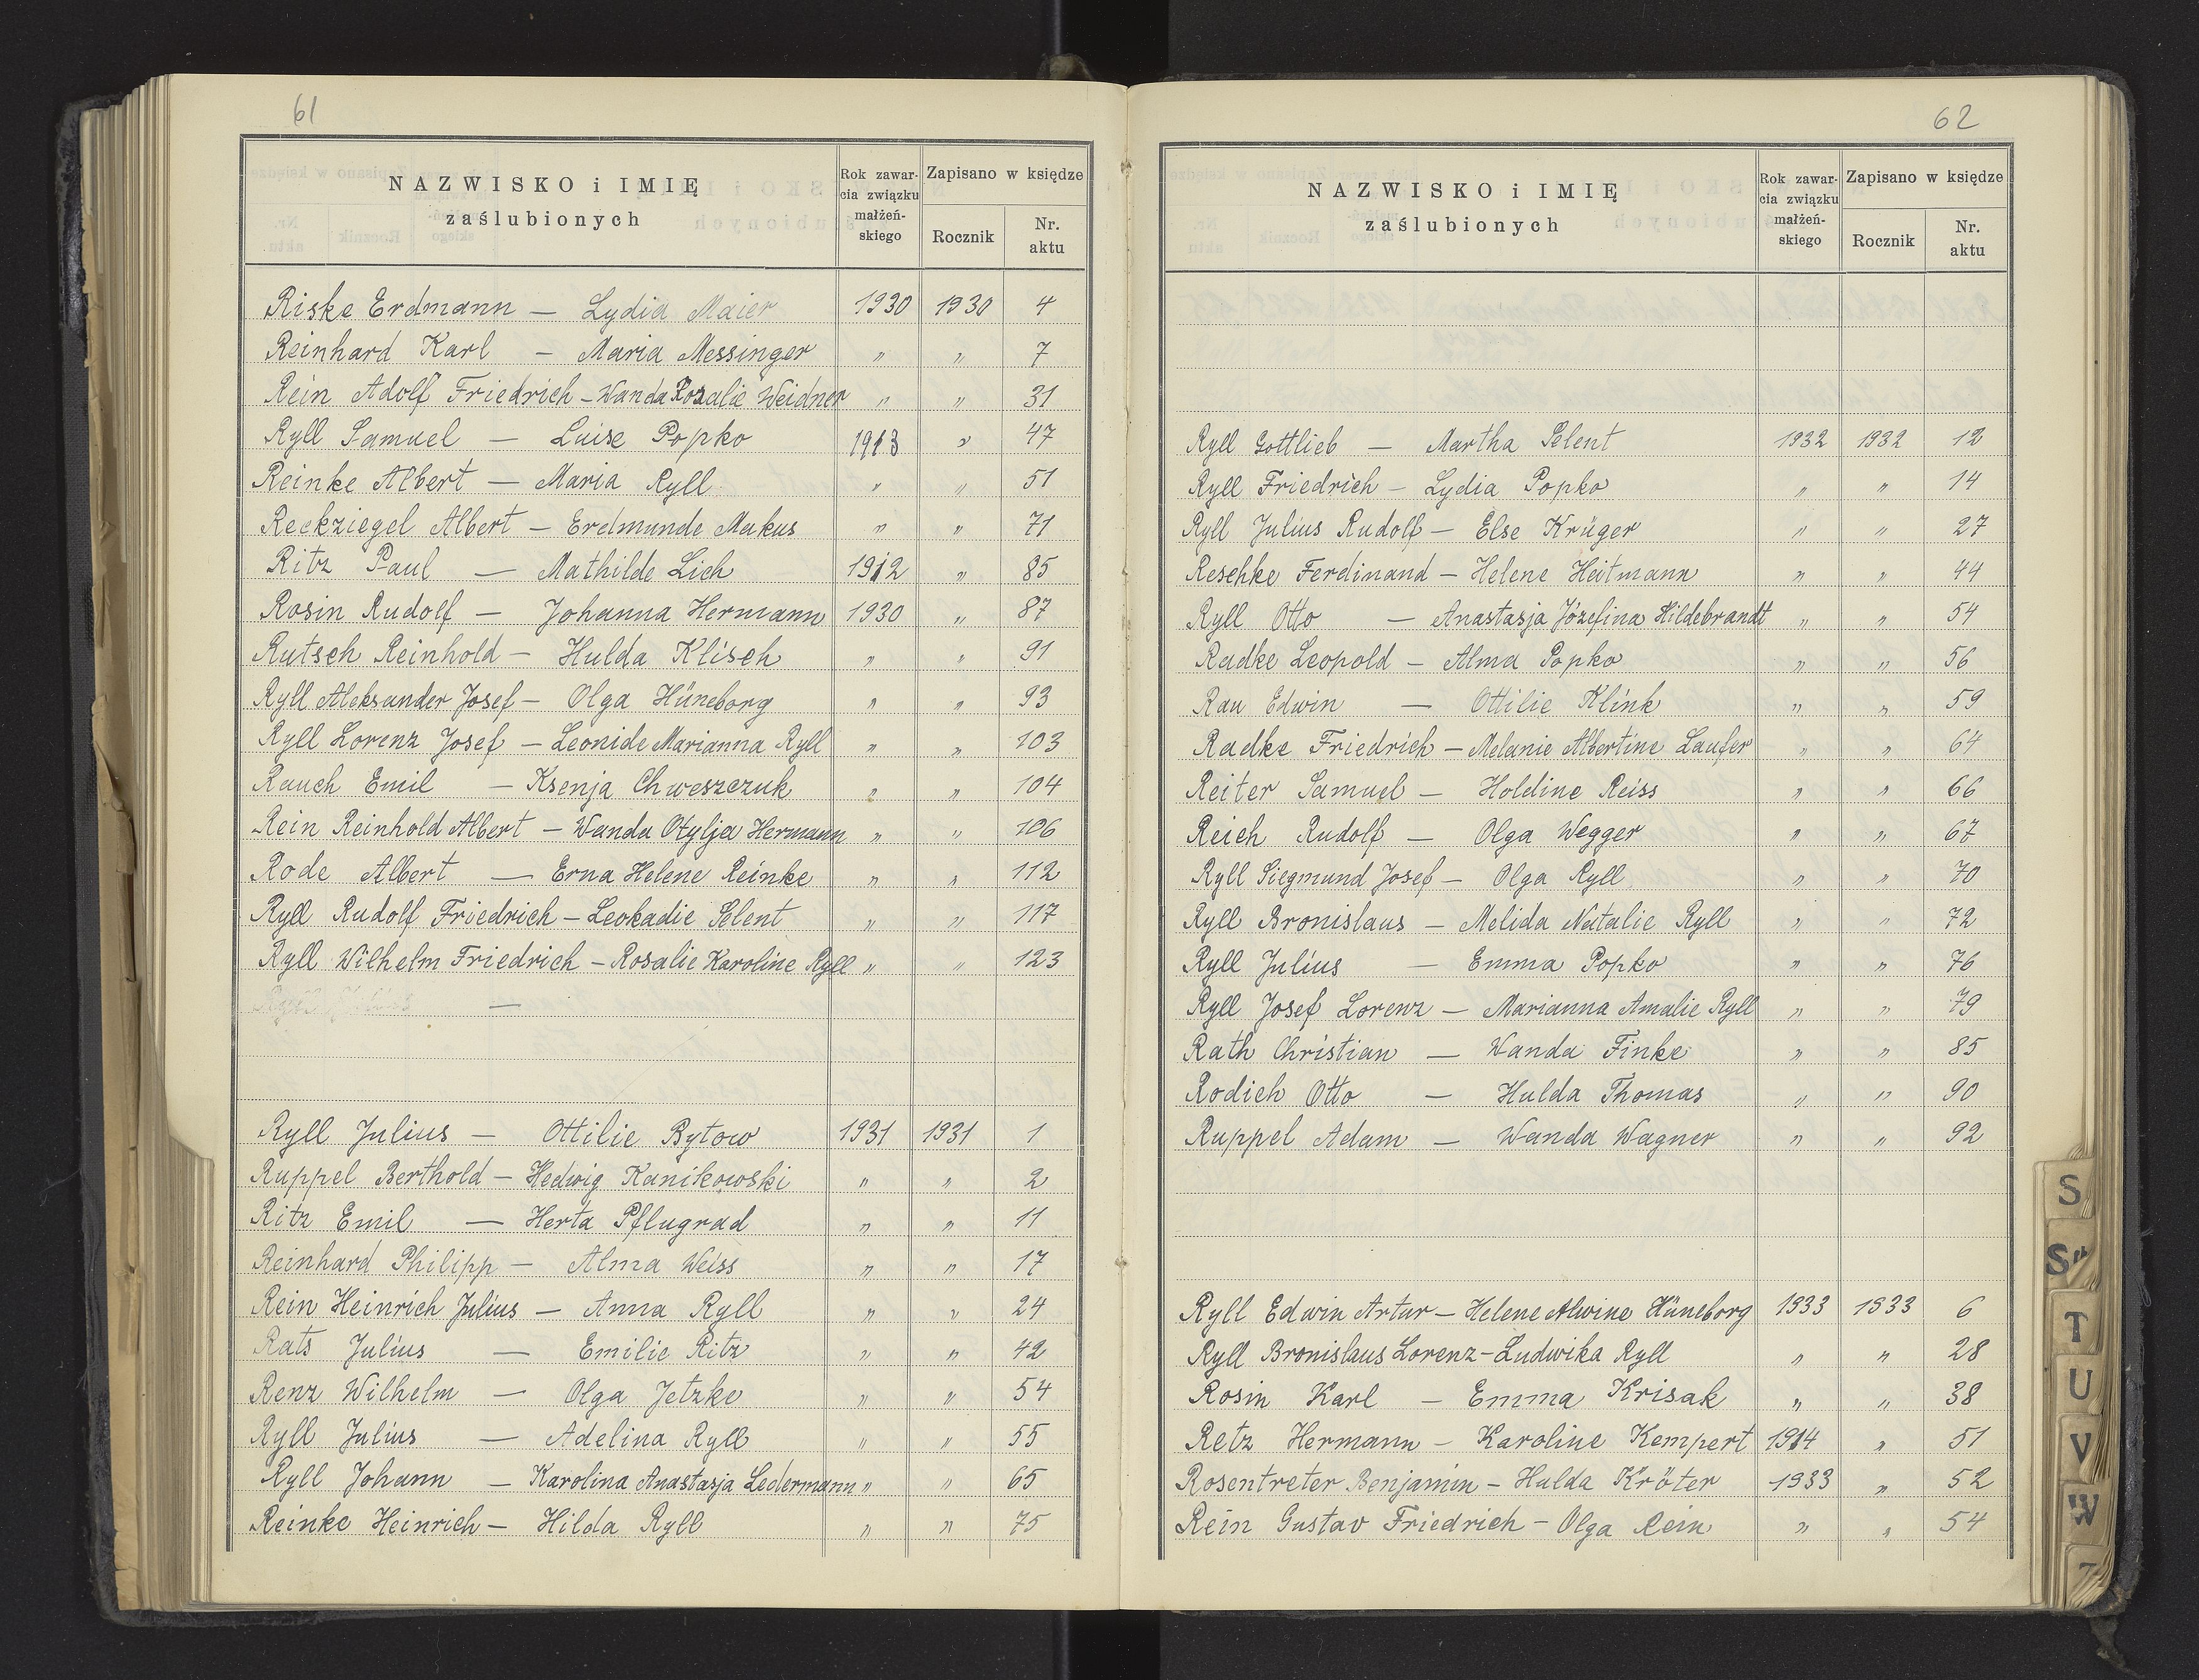 61
NAZWISKO i IMIĘ
zaślubionych
Rok zawar-
cia związku
małżeń-
skiego
Zapisano w księdze
Rocznik
Nr.
aktu
Riske Erdmann — Lydia Maier 1930 1930 4
Reinhard Karl — Maria Messinger " " 7
Rein Adolf Friedrich — Wanda Rosalie Weidner " " 31
Ryll Samuel — Luise Popko 1913 " 47
Reinke Albert — Maria Ryll " " 51
Reckziegel Albert — Erdmunde Makus " " 71
Ritz Paul — Mathilde Lich 1912 " 85
Rosin Rudolf — Johanna Hermann 1930 " 87
Rutsch Reinhold — Hulda Klisch " " 91
Ryll Aleksander Josef — Olga Hüneborg " " 93
Ryll Lorenz Josef — Leonide Marianna Ryll " " 103
Rauch Emil — Ksenja Chweszczuk " " 104
Rein Reinhold Albert — Wanda Otylja Hermann " " 106
Rode Albert — Erna Helene Reinke " " 112
Ryll Rudolf Friedrich — Leokadie Selent " " 117
Ryll Wilhelm Friedrich — Rosalie Karoline Ryll " " 123
Ryll Julius —
Ryll Julius — Ottilie Bytow 1931 1931 1
Ruppel Berthold — Hedwig Kanikowski " " 2
Ritz Emil — Herta Pflugrad " " 11
Reinhard Philipp — Alma Weiss " " 17
Rein Heinrich Julius — Anna Ryll " " 24
Rats Julius — Emilie Ritz " " 42
Renz Wilhelm — Olga Jetzke " " 54
Ryll Julius — Adelina Ryll " " 55
Ryll Johann — Karolina Anastasja Ledermann " " 65
Reinke Heinrich — Hilda Ryll " " 75
62
NAZWISKO i IMIĘ
zaślubionych
Rok zawar-
cia związku
małżeń-
skiego
Zapisano w księdze
Rocznik
Nr.
aktu
Ryll Gottlieb — Martha Selent 1932 1932 12
Ryll Friedrich — Lydia Popko " " 14
Ryll Julius Rudolf — Else Krüger " " 27
Reschke Ferdinand — Helene Heitmann " " 44
Ryll Otto — Anastasja Józefina Hildebrandt " " 54
Radke Leopold — Alma Popko " " 56
Rau Edwin — Ottilie Klink " " 59
Radke Friedrich — Melanie Albertine Laufer " " 64
Reiter Samuel — Holdine Reiss " " 66
Reich Rudolf — Olga Wegger " " 67
Ryll Siegmund Josef — Olga Ryll " " 70
Ryll Bronislaus — Melida Natalie Ryll " " 72
Ryll Julius — Emma Popko " " 76
Ryll Josef Lorenz — Marianna Amalie Ryll " " 79
Rath Christian — Wanda Finke " " 85
Rodich Otto — Hulda Thomas " " 90
Ruppel Adam — Wanda Wagner " " 92
Ryll Edwin Artur — Helene Alwine Hüneborg 1933 1933 6
Ryll Bronislaus Lorenz — Ludwika Ryll " " 28
Rosin Karl — Emma Krisak " " 38
Retz Hermann — Karoline Kempert 1914 " 51
Rosentreter Benjamin — Hulda Kröter 1933 " 52
Rein Gustav Friedrich — Olga Rein " " 54
S
S"
T
U
V
W
Z